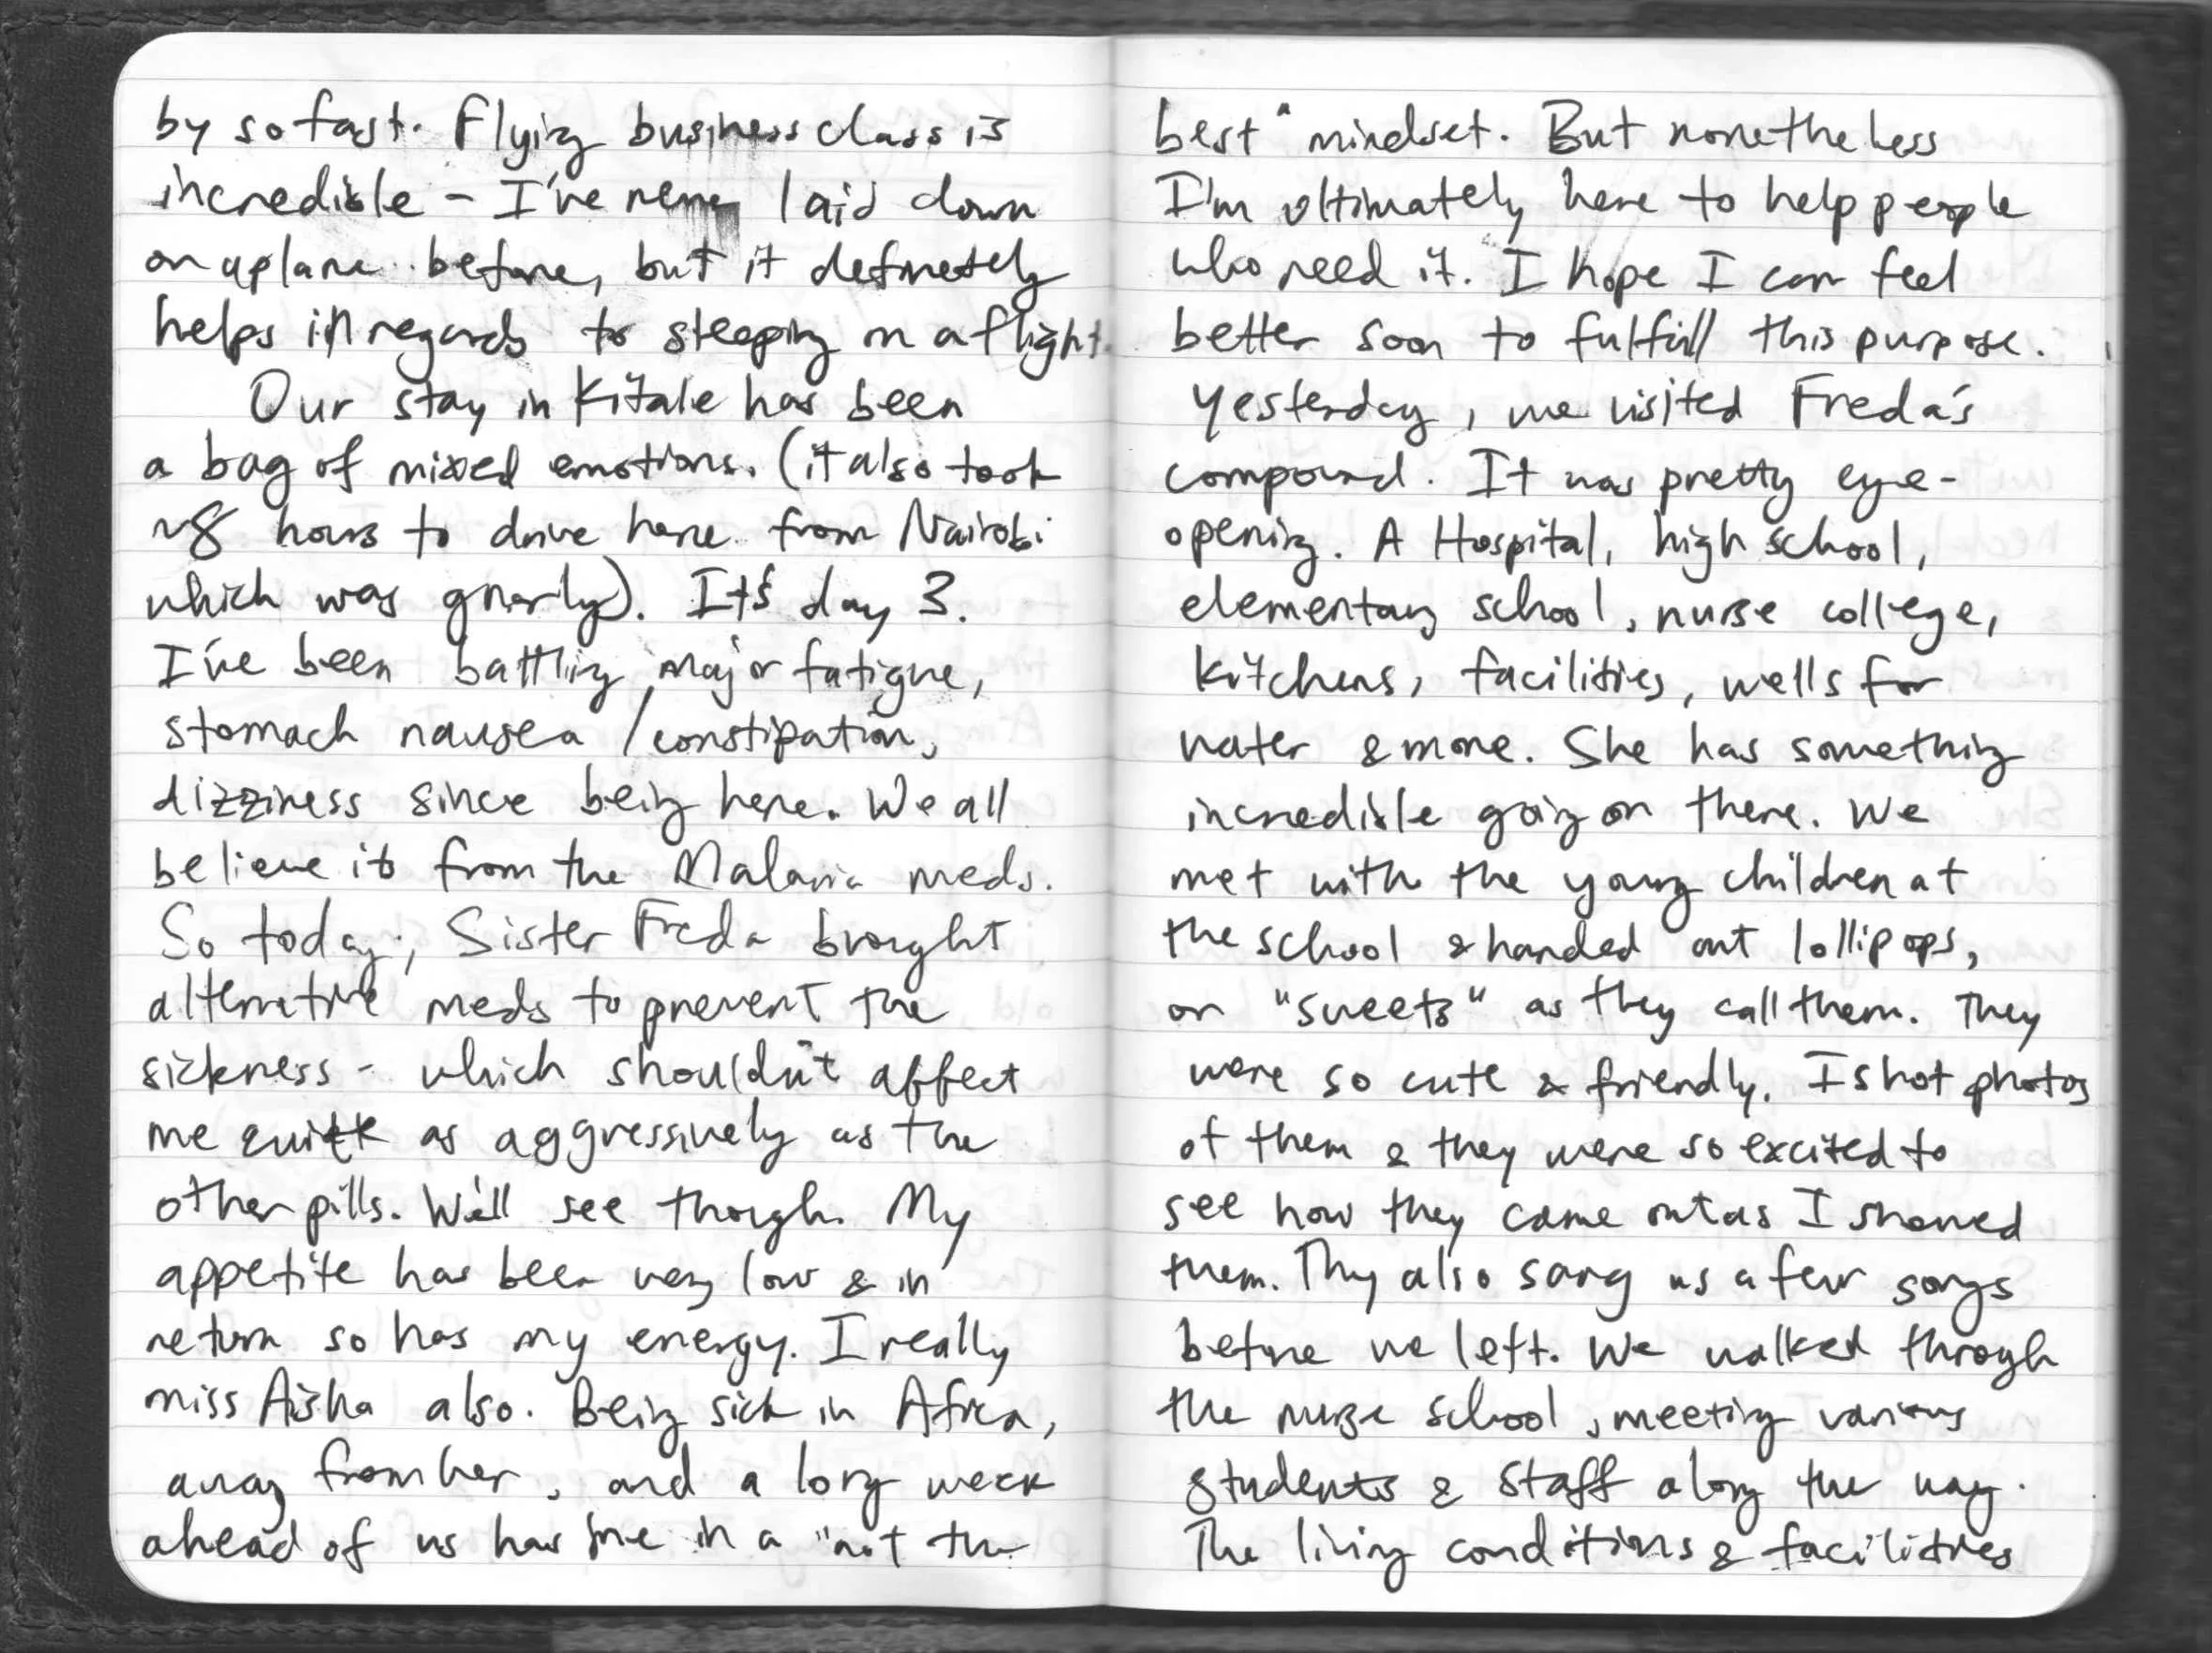 by so fast. Flying business class is
incredible - I've never laid down
on a plane before, but it definetely
helps in regards to sleeping on a flight.
Our stay in Kitale has been
a bag of mixed emotions. (it also took
~8 hours to drive here from Nairobi
which was gnarly). It's day 3.
I've been battling major fatigue,
stomach nausea / constipation,
dizziness since being here. We all
believe it's from the Malaria meds.
So today, Sister Freda brought
alternative meds to prevent the
sickness - which shouldn't affect
me quite as aggressively as the
other pills. We'll see though. My
appetite has been very low & in
return so has my energy. I really
miss Aisha also. Being sick in Africa,
away from her, and a long week
ahead of us has me in a "not the
best" mindset. But nonetheless
I'm ultimately here to help people
who need it. I hope I can feel
better soon to fulfill this purpose.
Yesterday, we visited Freda's
compound. It was pretty eye-
opening. A Hospital, high school,
elementary school, nurse college,
kitchens, facilities, wells for
water & more. She has something
incredible going on there. We
met with the young children at
the school & handed out lollipops,
or "sweets" as they call them. They
were so cute & friendly. I shot photos
of them & they were so excited to
see how they came out as I showed
them. They also sang us a few songs
before we left. We walked through
the nurse school, meeting various
students & staff along the way.
The living conditions & facilities